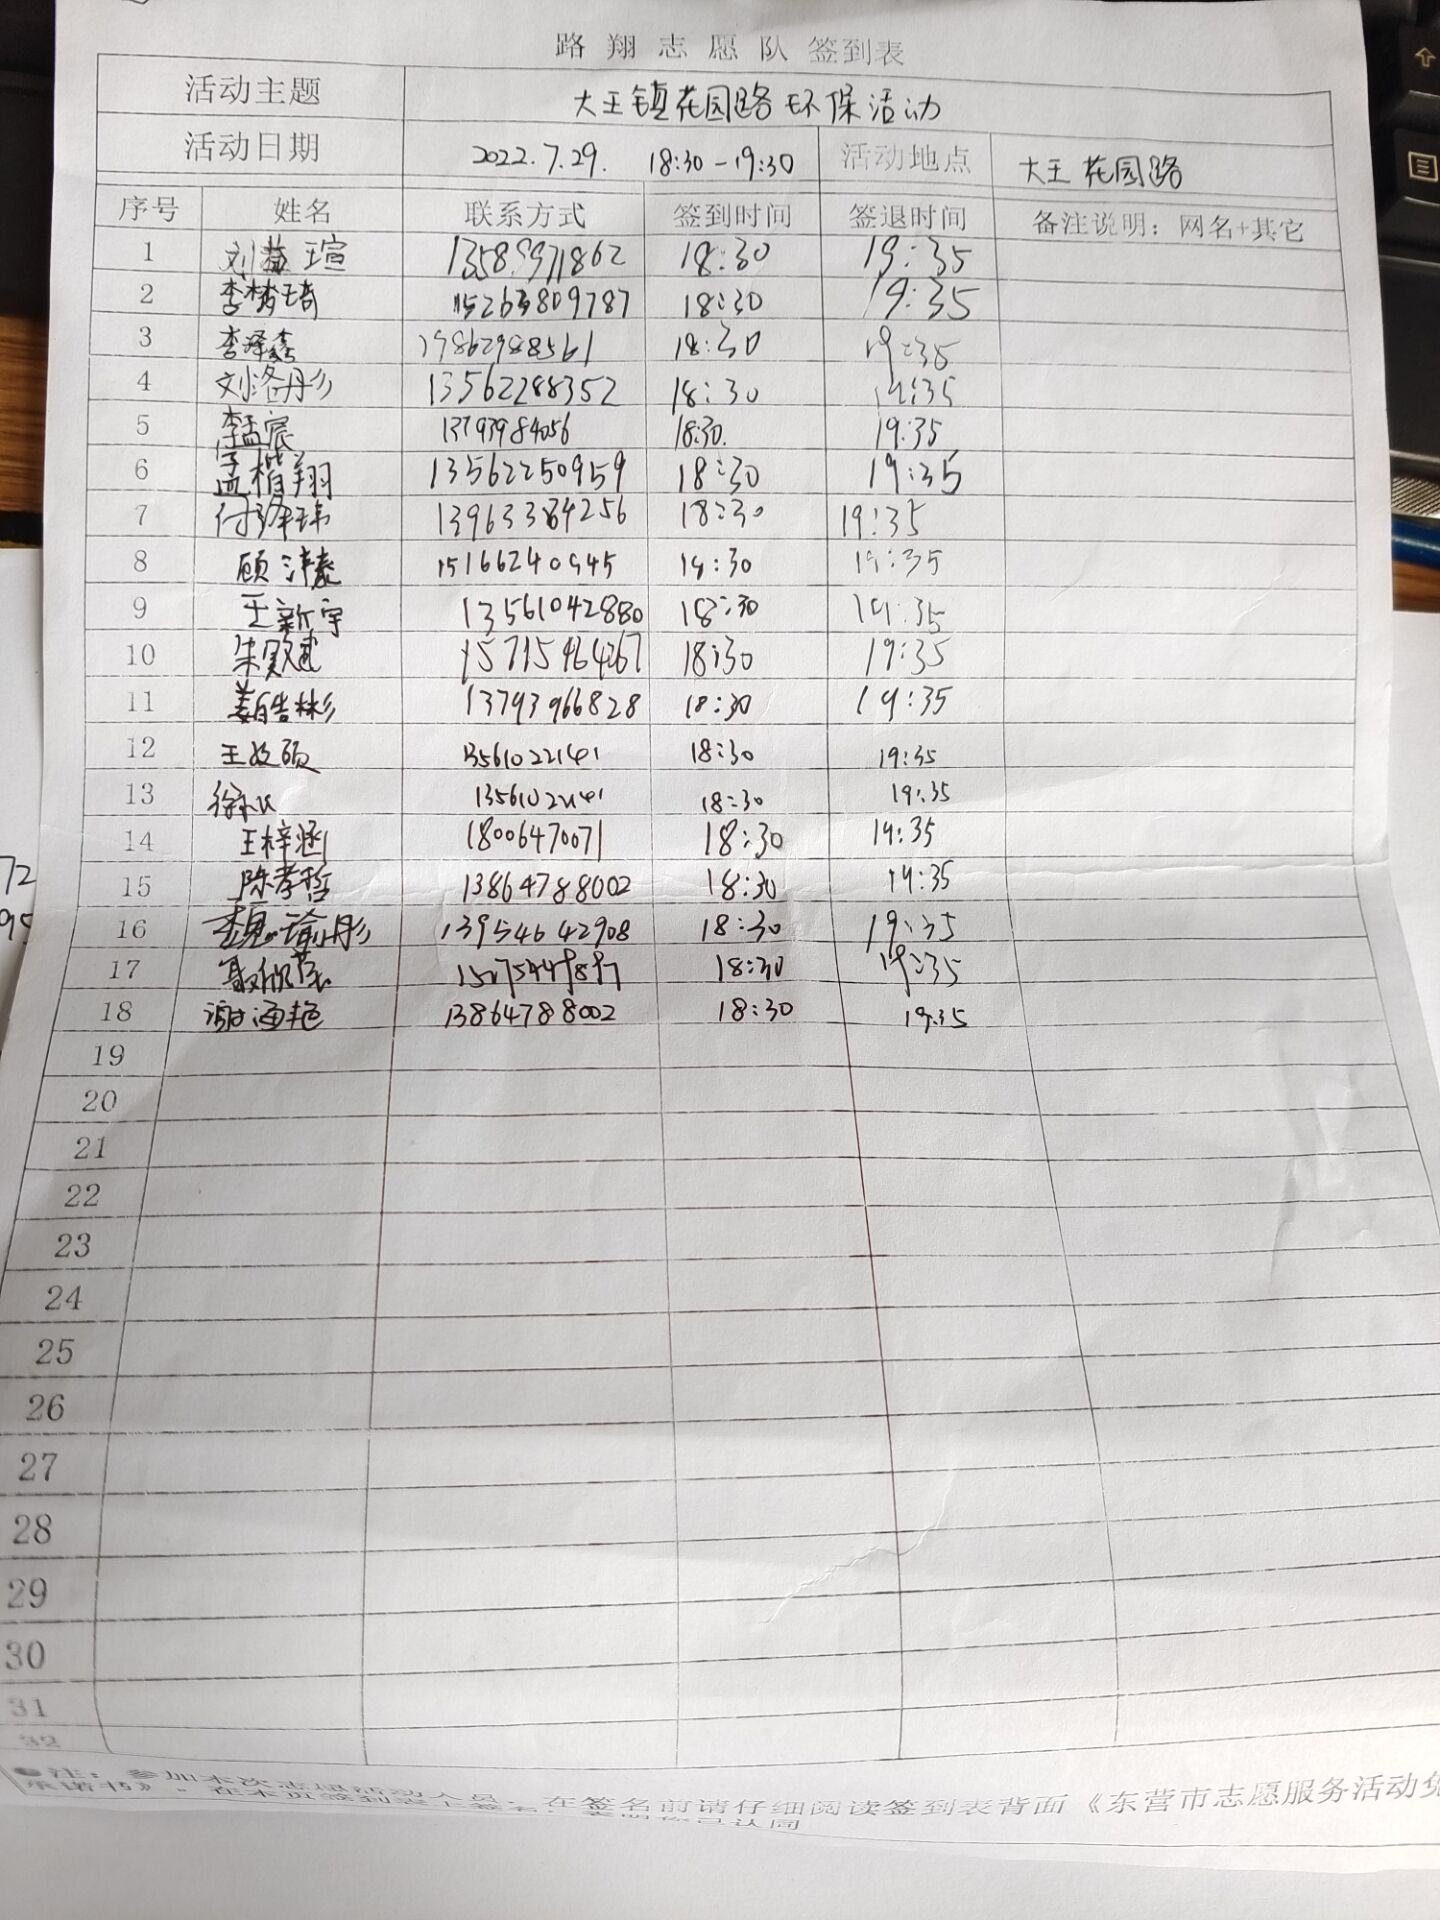 路翔志愿队 签到表
活动主题 大王镇花园路环保活动
活动日期 2022.7.29. 18:30-19:30 活动地点 大王花园路
序号 姓名 联系方式 签到时间 签退时间 备注说明：网名+其它
1 刘 瑄 18:30 19:35
2 李梦琦 15263809787 18:30 19:35
3 李泽鑫 19862988561 18:30 19:35
4 刘洛彤 13562288352 18:30 19:35
5 李孟宸 13793984056 18:30. 19:35
6 孟楷翔 13562250959 18:30 19:35
7 付 玮 13963384256 18:30 19:35
8 顾沣泰 15166240945 18:30 19:35
9 王新宇 13561042880 18:30 19:35
10 朱 斌 18:30 19:35
11 姜皓彬 13793966828 18:30 19:35
12 王 硕 13561022141 18:30 19:35
13 徐 13561022141 18:30 19:35
14 王梓涵 18006470071 18:30 19:35
15 陈孝哲 13864788002 18:30 19:35
16 魏瑜彤 13954642908 18:30 19:35
17 18:30 19:35
18 谢海艳 13864788002 18:30 19:35
19
20
21
22
23
24
25
26
27
28
29
30
31
32
●注：参加本次志愿活动人员，在签名前请仔细阅读签到表背面《东营市志愿服务活动免
承诺书》，在本页签到表上签名，表明你已认同
72
95